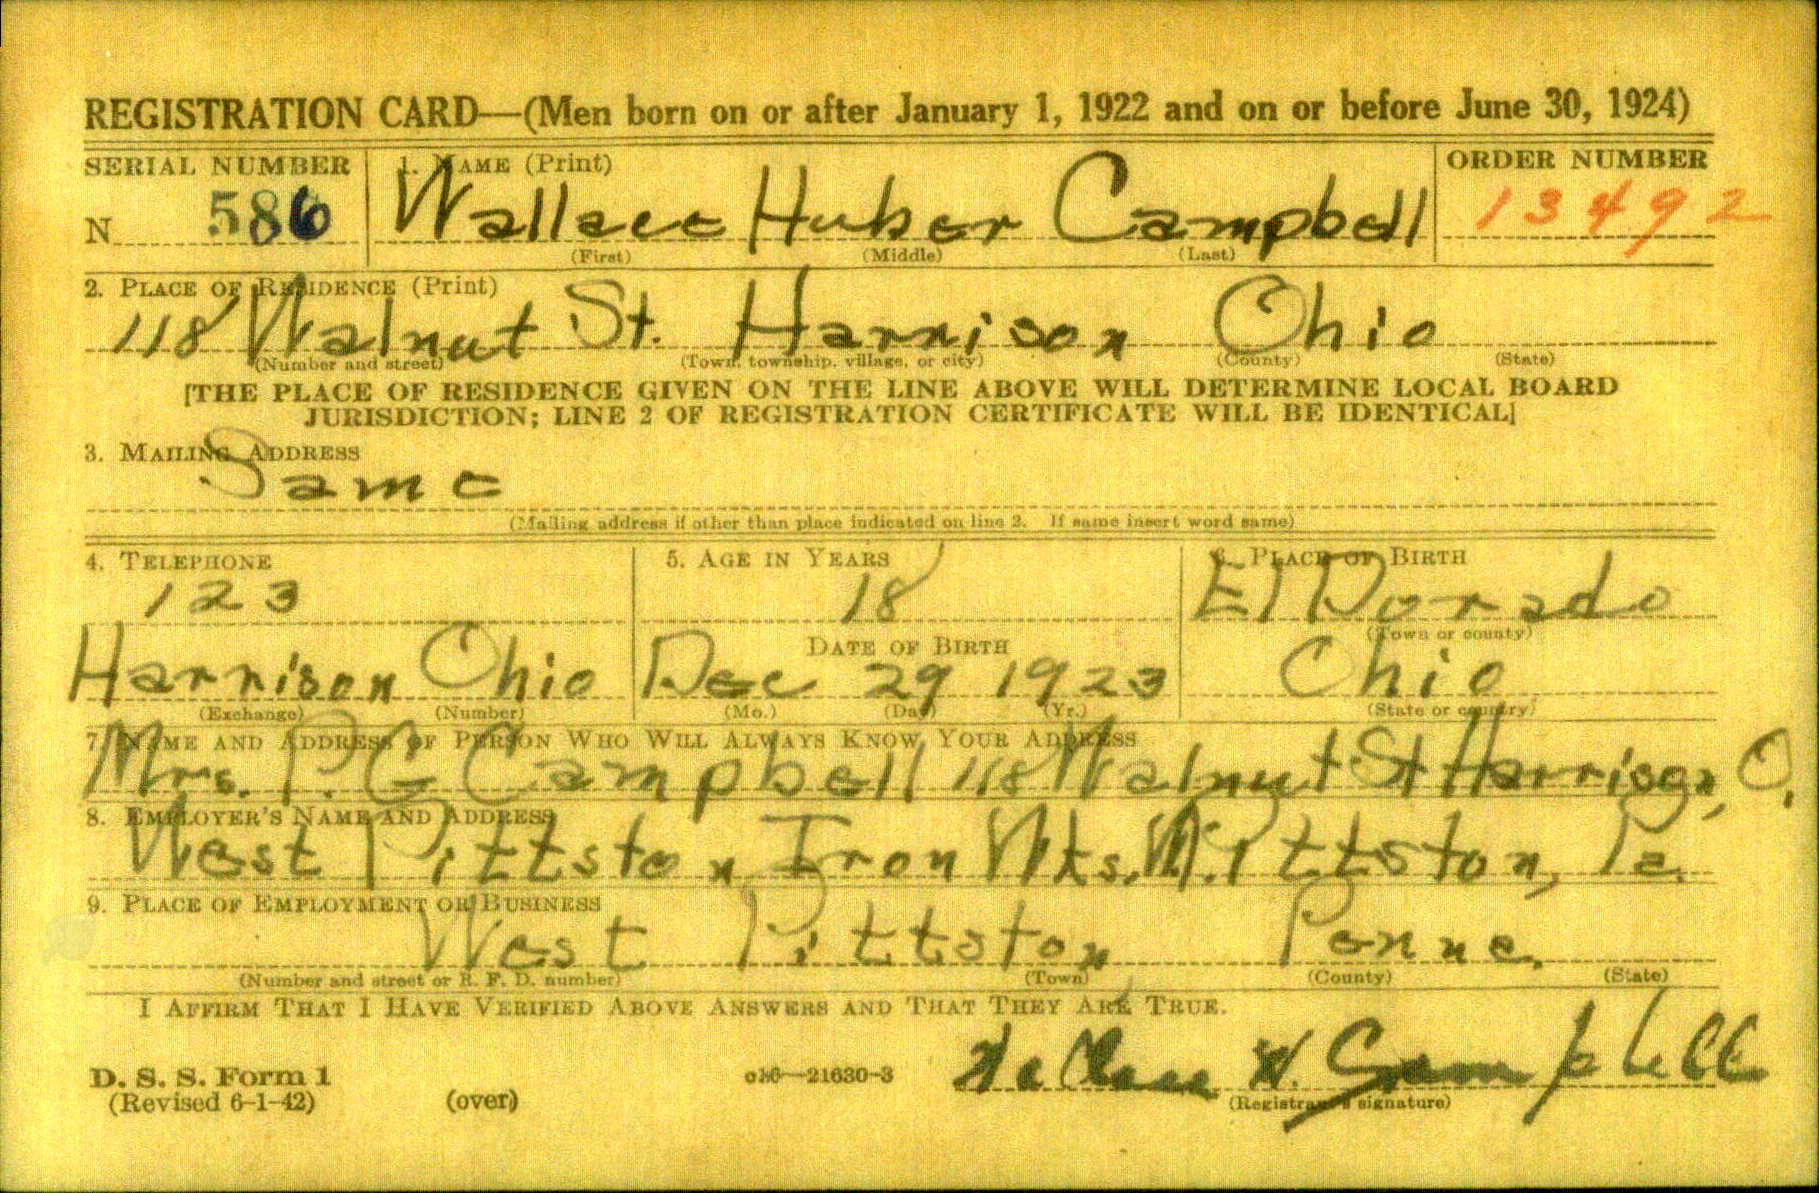 REGISTRATION CARD—(Men born on or after January 1, 1922 and on or before June 30, 1924)
SERIAL NUMBER 1. NAME (Print) ORDER NUMBER
N 586 Wallace Huber Campbell 13492
(First) (Middle) (Last)
2. PLACE OF RESIDENCE (Print)
118 Walnut St. Harrison Ohio
(Number and street) (Town, township, village, or city) (County) (State)
[THE PLACE OF RESIDENCE GIVEN ON THE LINE ABOVE WILL DETERMINE LOCAL BOARD
JURISDICTION; LINE 2 OF REGISTRATION CERTIFICATE WILL BE IDENTICAL]
3. MAILING ADDRESS
Same
(Mailing address if other than place indicated on line 2. If same insert word same)
4. TELEPHONE 5. AGE IN YEARS 6. PLACE OF BIRTH
123 18 El Dorado
DATE OF BIRTH (Town or county)
Harrison Ohio Dec 29 1923 Ohio
(Exchange) (Number) (Mo.) (Day) (Yr.) (State or country)
7. NAME AND ADDRESS OF PERSON WHO WILL ALWAYS KNOW YOUR ADDRESS
Mrs. P. G Campbell 118 Walnut St Harrison, O.
8. EMPLOYER'S NAME AND ADDRESS
West Pittston Iron Wks. W. Pittston, Pa.
9. PLACE OF EMPLOYMENT OR BUSINESS
West Pittston Penna.
(Number and street or R. F. D. number) (Town) (County) (State)
I AFFIRM THAT I HAVE VERIFIED ABOVE ANSWERS AND THAT THEY ARE TRUE.
D. S. S. Form 1 16—21630-3 Wallace H. Campbell
(Revised 6-1-42) (over) (Registrant's signature)